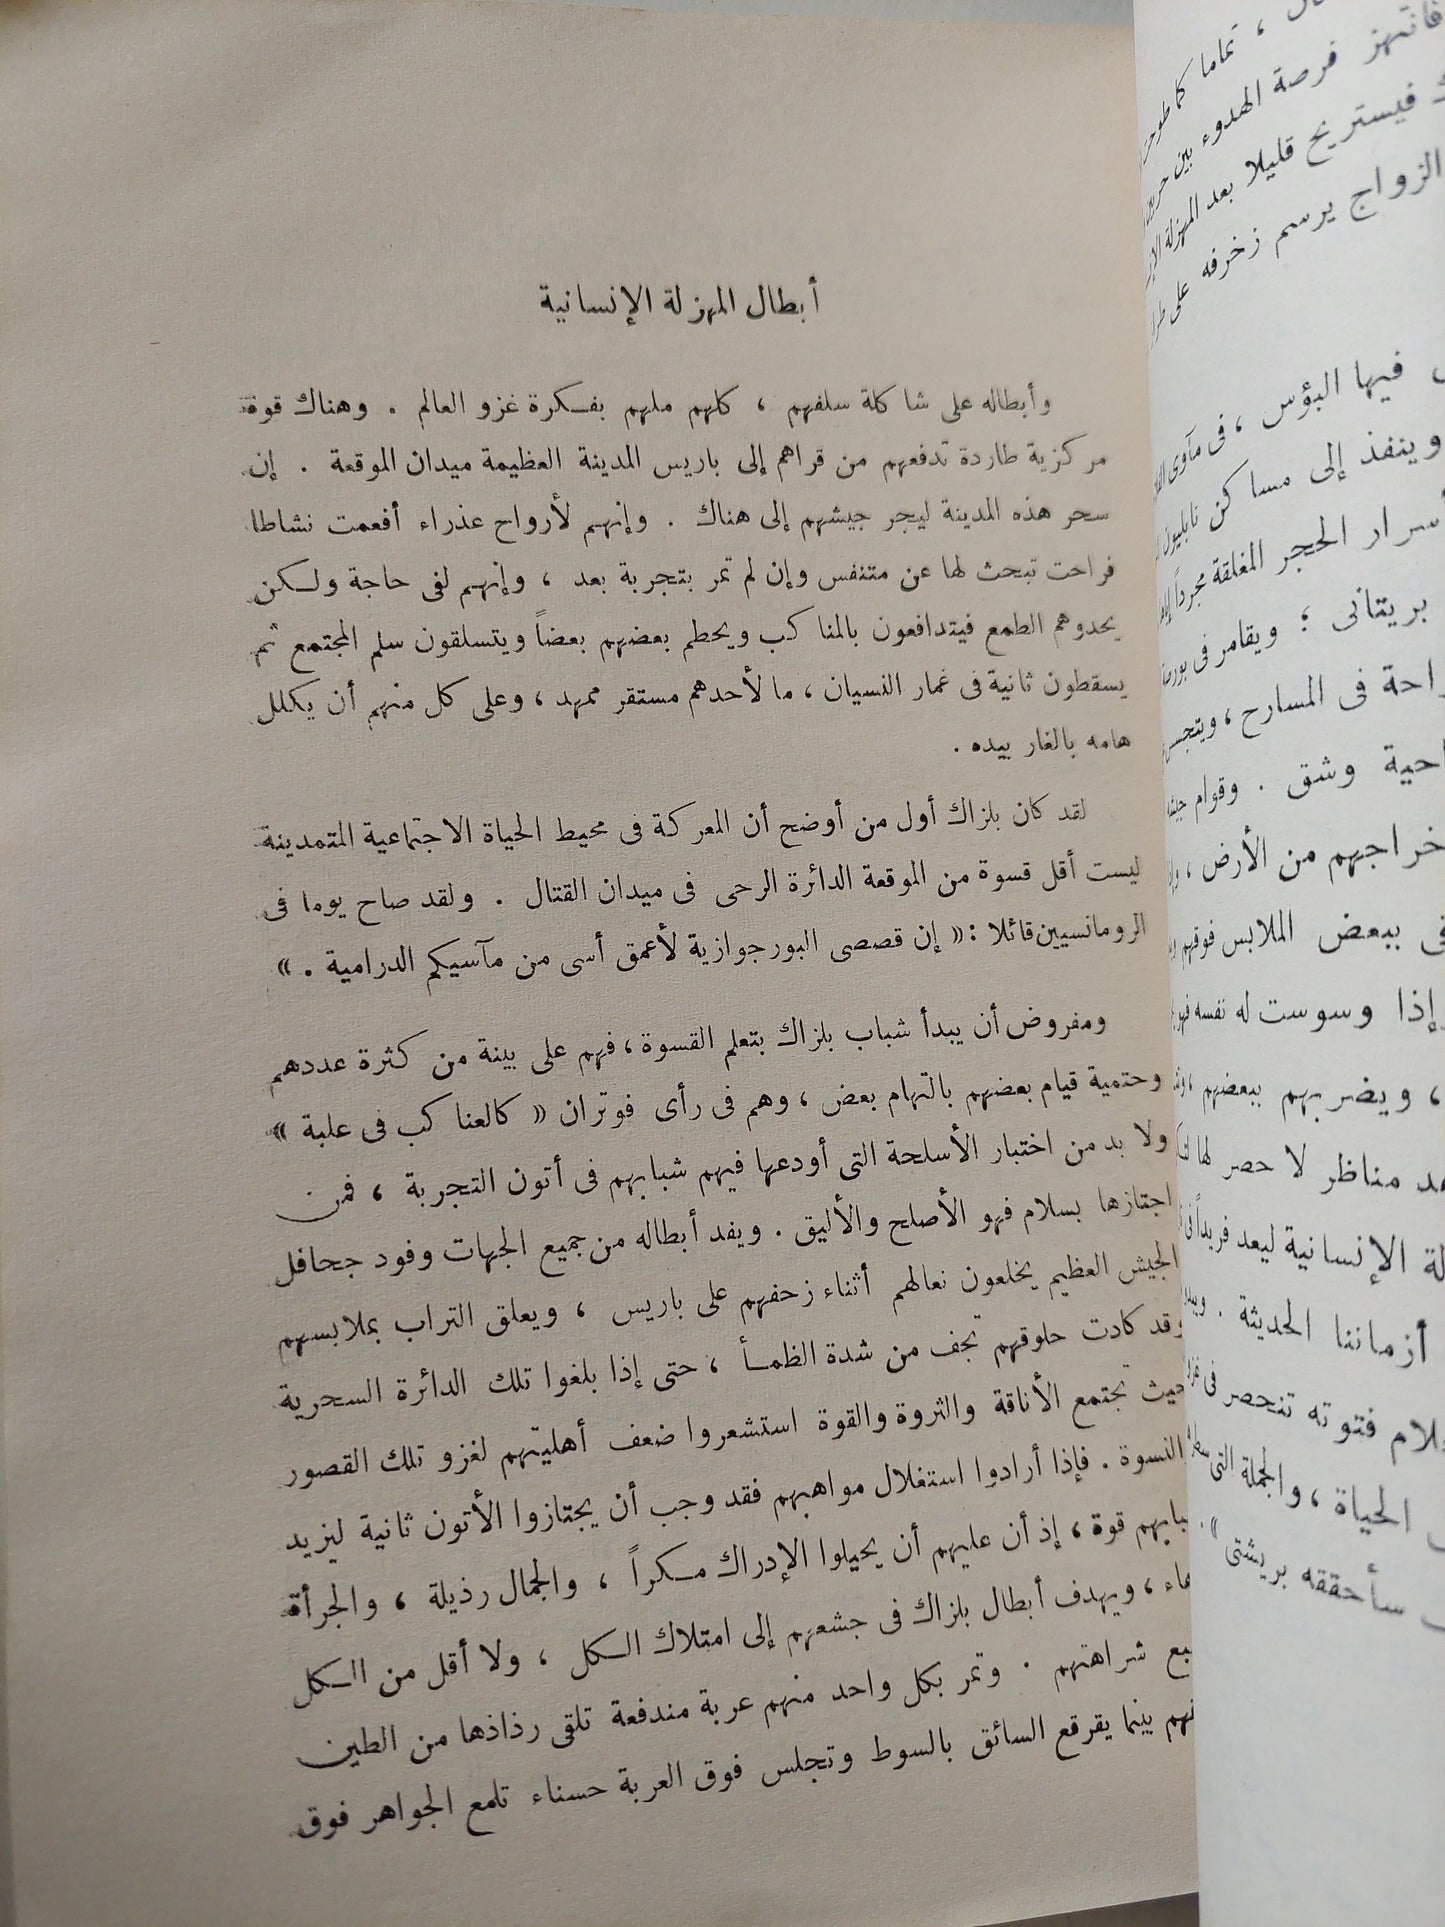 أبطال المهزلة الإنسانية
وأبطاله على شاكلة سلفهم ، كلهم ملهم بفكرة غزو العالم . وهناك قوة
مركزية طاردة تدفعهم من قراهم إلى باريس المدينة العظيمة ميدان الموقعة . إن
سحر هذه المدينة ليجر جيشهم إلى هناك . وإنهم لأرواح عذراء أفعمت نشاطا
فراحت تبحث لها عن متنفس وإن لم تمر بتجربة بعد ، وإنهم لفى حاجة ولكن
يحدوهم الطمع فيتدافعون بالمناكب ويحطم بعضهم بعضاً ويتسلقون سلم المجتمع ثم
يسقطون ثانية فى غمار النسيان ، ما لأحدهم مستقر ممهد ، وعلى كل منهم أن يكلل
هامه بالغار بيده .
لقد كان بلزاك أول من أوضح أن المعركة فى محيط الحياة الاجتماعية المتمدينة
ليست أقل قسوة من الموقعة الدائرة الرحى فى ميدان القتال . ولقد صاح يوما فى
الرومانسيين قائلا : « إن قصصى البورجوازية لأعمق أسى من مآسيكم الدرامية . »
ومفروض أن يبدأ شباب بلزاك بتعلم القسوة ، فهم على بينة من كثرة عددهم
وحتمية قيام بعضهم بالتهام بعض ، وهم فى رأى فوتران « كالعناكب فى علبة »
ولا بد من اختبار الأسلحة التى أودعها فيهم شبابهم فى أتون التجربة ، فمن
اجتازها بسلام فهو الأصلح والأليق . ويفد أبطاله من جميع الجهات وفود جحافل
الجيش العظيم يخلعون نعالهم أثناء زحفهم على باريس ، ويعلق التراب بملابسهم
وقد كادت حلوقهم تجف من شدة الظمأ ، حتى إذا بلغوا تلك الدائرة السحرية
حيث تجتمع الأناقة والثروة والقوة استشعروا ضعف أهليتهم لغزو تلك القصور
النسوة . فإذا أرادوا استغلال مواهبهم فقد وجب أن يجتازوا الأتون ثانية ليزيد
قوة ، إذ أن عليهم أن يحيلوا الإدراك مكراً ، والجمال رذيلة ، والجرأة
، ويهدف أبطال بلزاك فى جشعهم إلى امتلاك الكل ، ولا أقل من الكل
شراهتهم . وتمر بكل واحد منهم عربة مندفعة تلقى رذاذها من الطين
بينما يقرقع السائق بالسوط وتجلس فوق العربة حسناء تلمع الجواهر فوق
، تماما كما
فانتهز فرصة الهدوء بين
فيستريح قليلا بعد المهزلة
الزواج يرسم زخرفه على
فيها البؤس ، فى مآوى
وينفذ إلى مساكن نابليون
أسرار الحجر المغلقة مجرداً
بريتانى ؛ ويقامر فى
فى المسارح ،
وشق . وقوام
من الأرض ،
ببعض الملابس فوقهم
وإذا وسوست له نفسه
، ويضربهم ببعضهم ،
مناظر لا حصر لها
الإنسانية ليعد فريداً
أزماننا الحديثة .
فتوته تنحصر فى
الحياة ، والجملة التى
سأحققه بريشتى » .